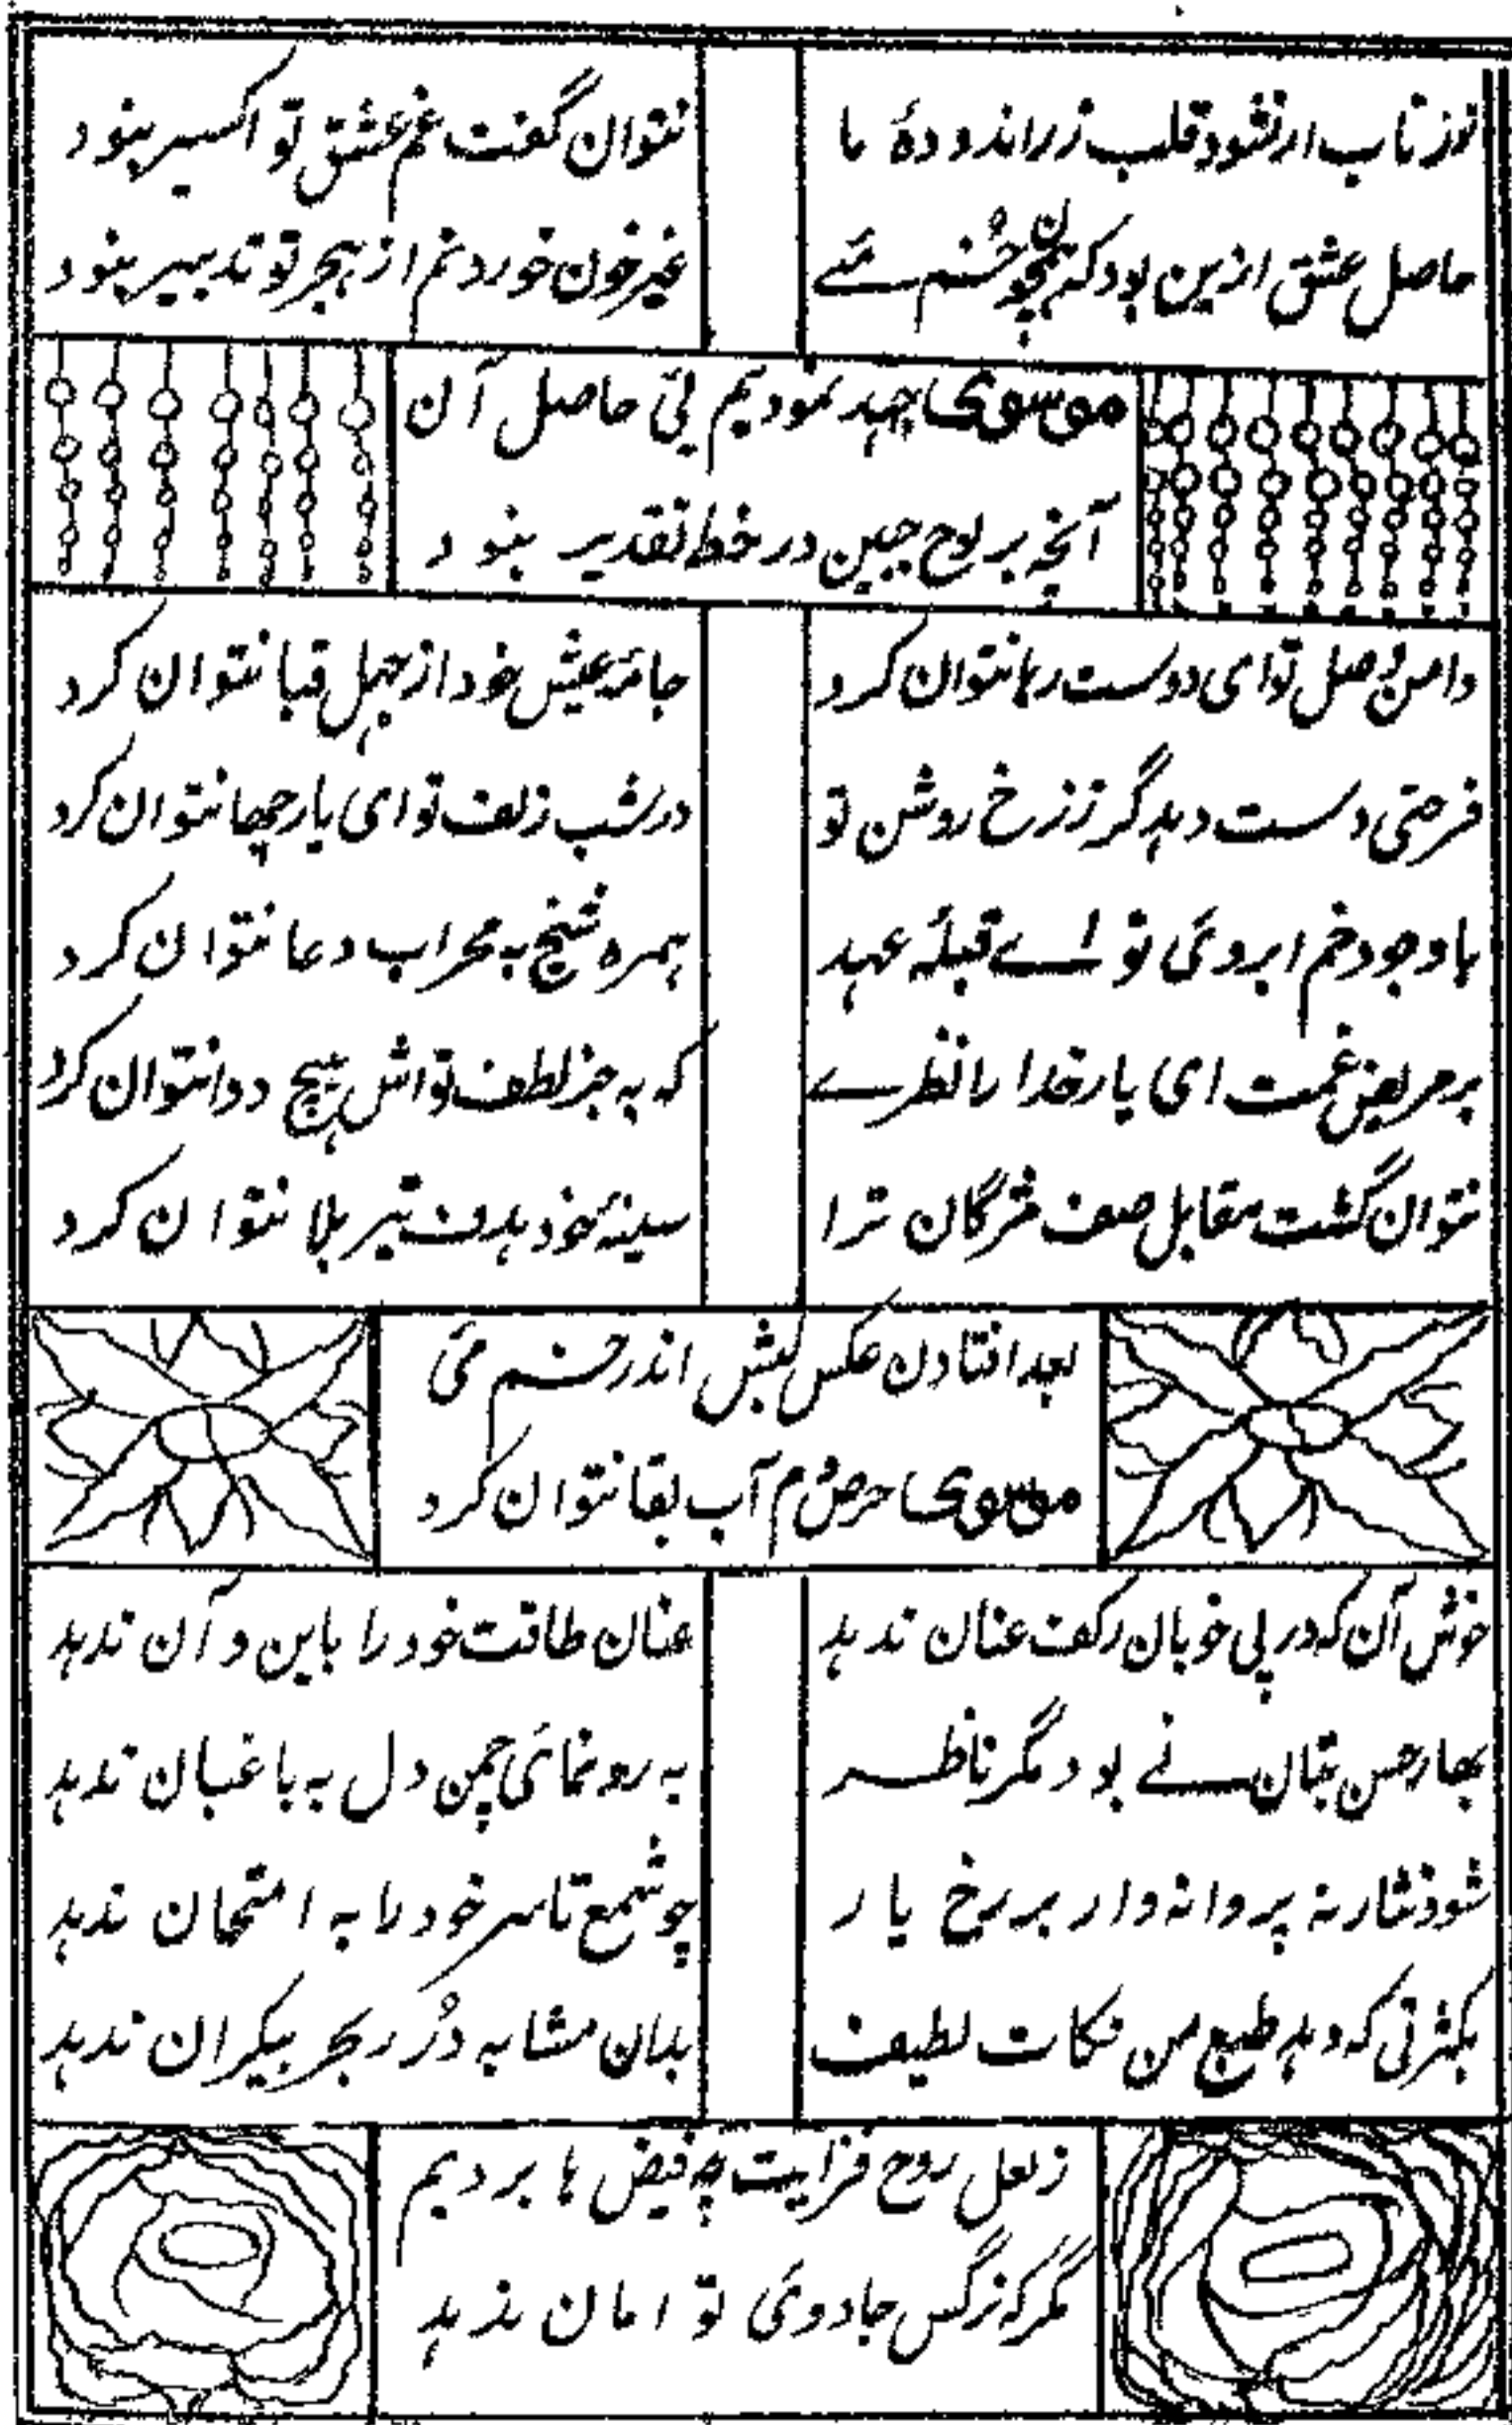 نتوان گفت غم عشق تو اکسیر نبود
تاب ار نشود قلب زر اندودهٔ ما
حاصل عشق ازین بود که همچون خم مئے
غیر خون خوردنم از هجر تو تدبیر نبود
موسوی جهد نمودیم پئ حاصل آن
آنچه بر لوح جبین در خط تقدیر نبود
دامن وصل تو ای دوست رها نتوان کرد
جامهٔ عیش خود از جهل قبا نتوان کرد
فرصتی دست دهد گر ز رخ روشن تو
در شب زلف تو ای یار چها نتوان کرد
با وجود خم ابروئ تو اے قبلهٔ عهد
همره شیخ به محراب دعا نتوان کرد
بر مریض غمت ای یار خدا را نظرے
که به جز لطف تواش هیچ دوا نتوان کرد
نتوان گشت مقابل صف مژگان ترا
سینهٔ خود هدف تیر بلا نتوان کرد
بعد افتادن عکس لبش اندر خم مئ
موسوی حرص آب بقا نتوان کرد
خوش آن که در پی خوبان ز کف عنان ندهد
عنان طاقت خود را باین و آن ندهد
بهار حسن بتان نے بود مگر ناظر
به رونمائ چمن دل به باغبان ندهد
شود نثار نه پروانه وار بر رخ یار
چو شمع تا سر خود را به امتحان ندهد
بکثرتی که دهد طبع من نکات لطیف
بدان مشابه دُر بحر بیکران ندهد
ز لعل روح فزایت چه فیض ها بردیم
مگر که نرگس جادوئ تو امان ندهد